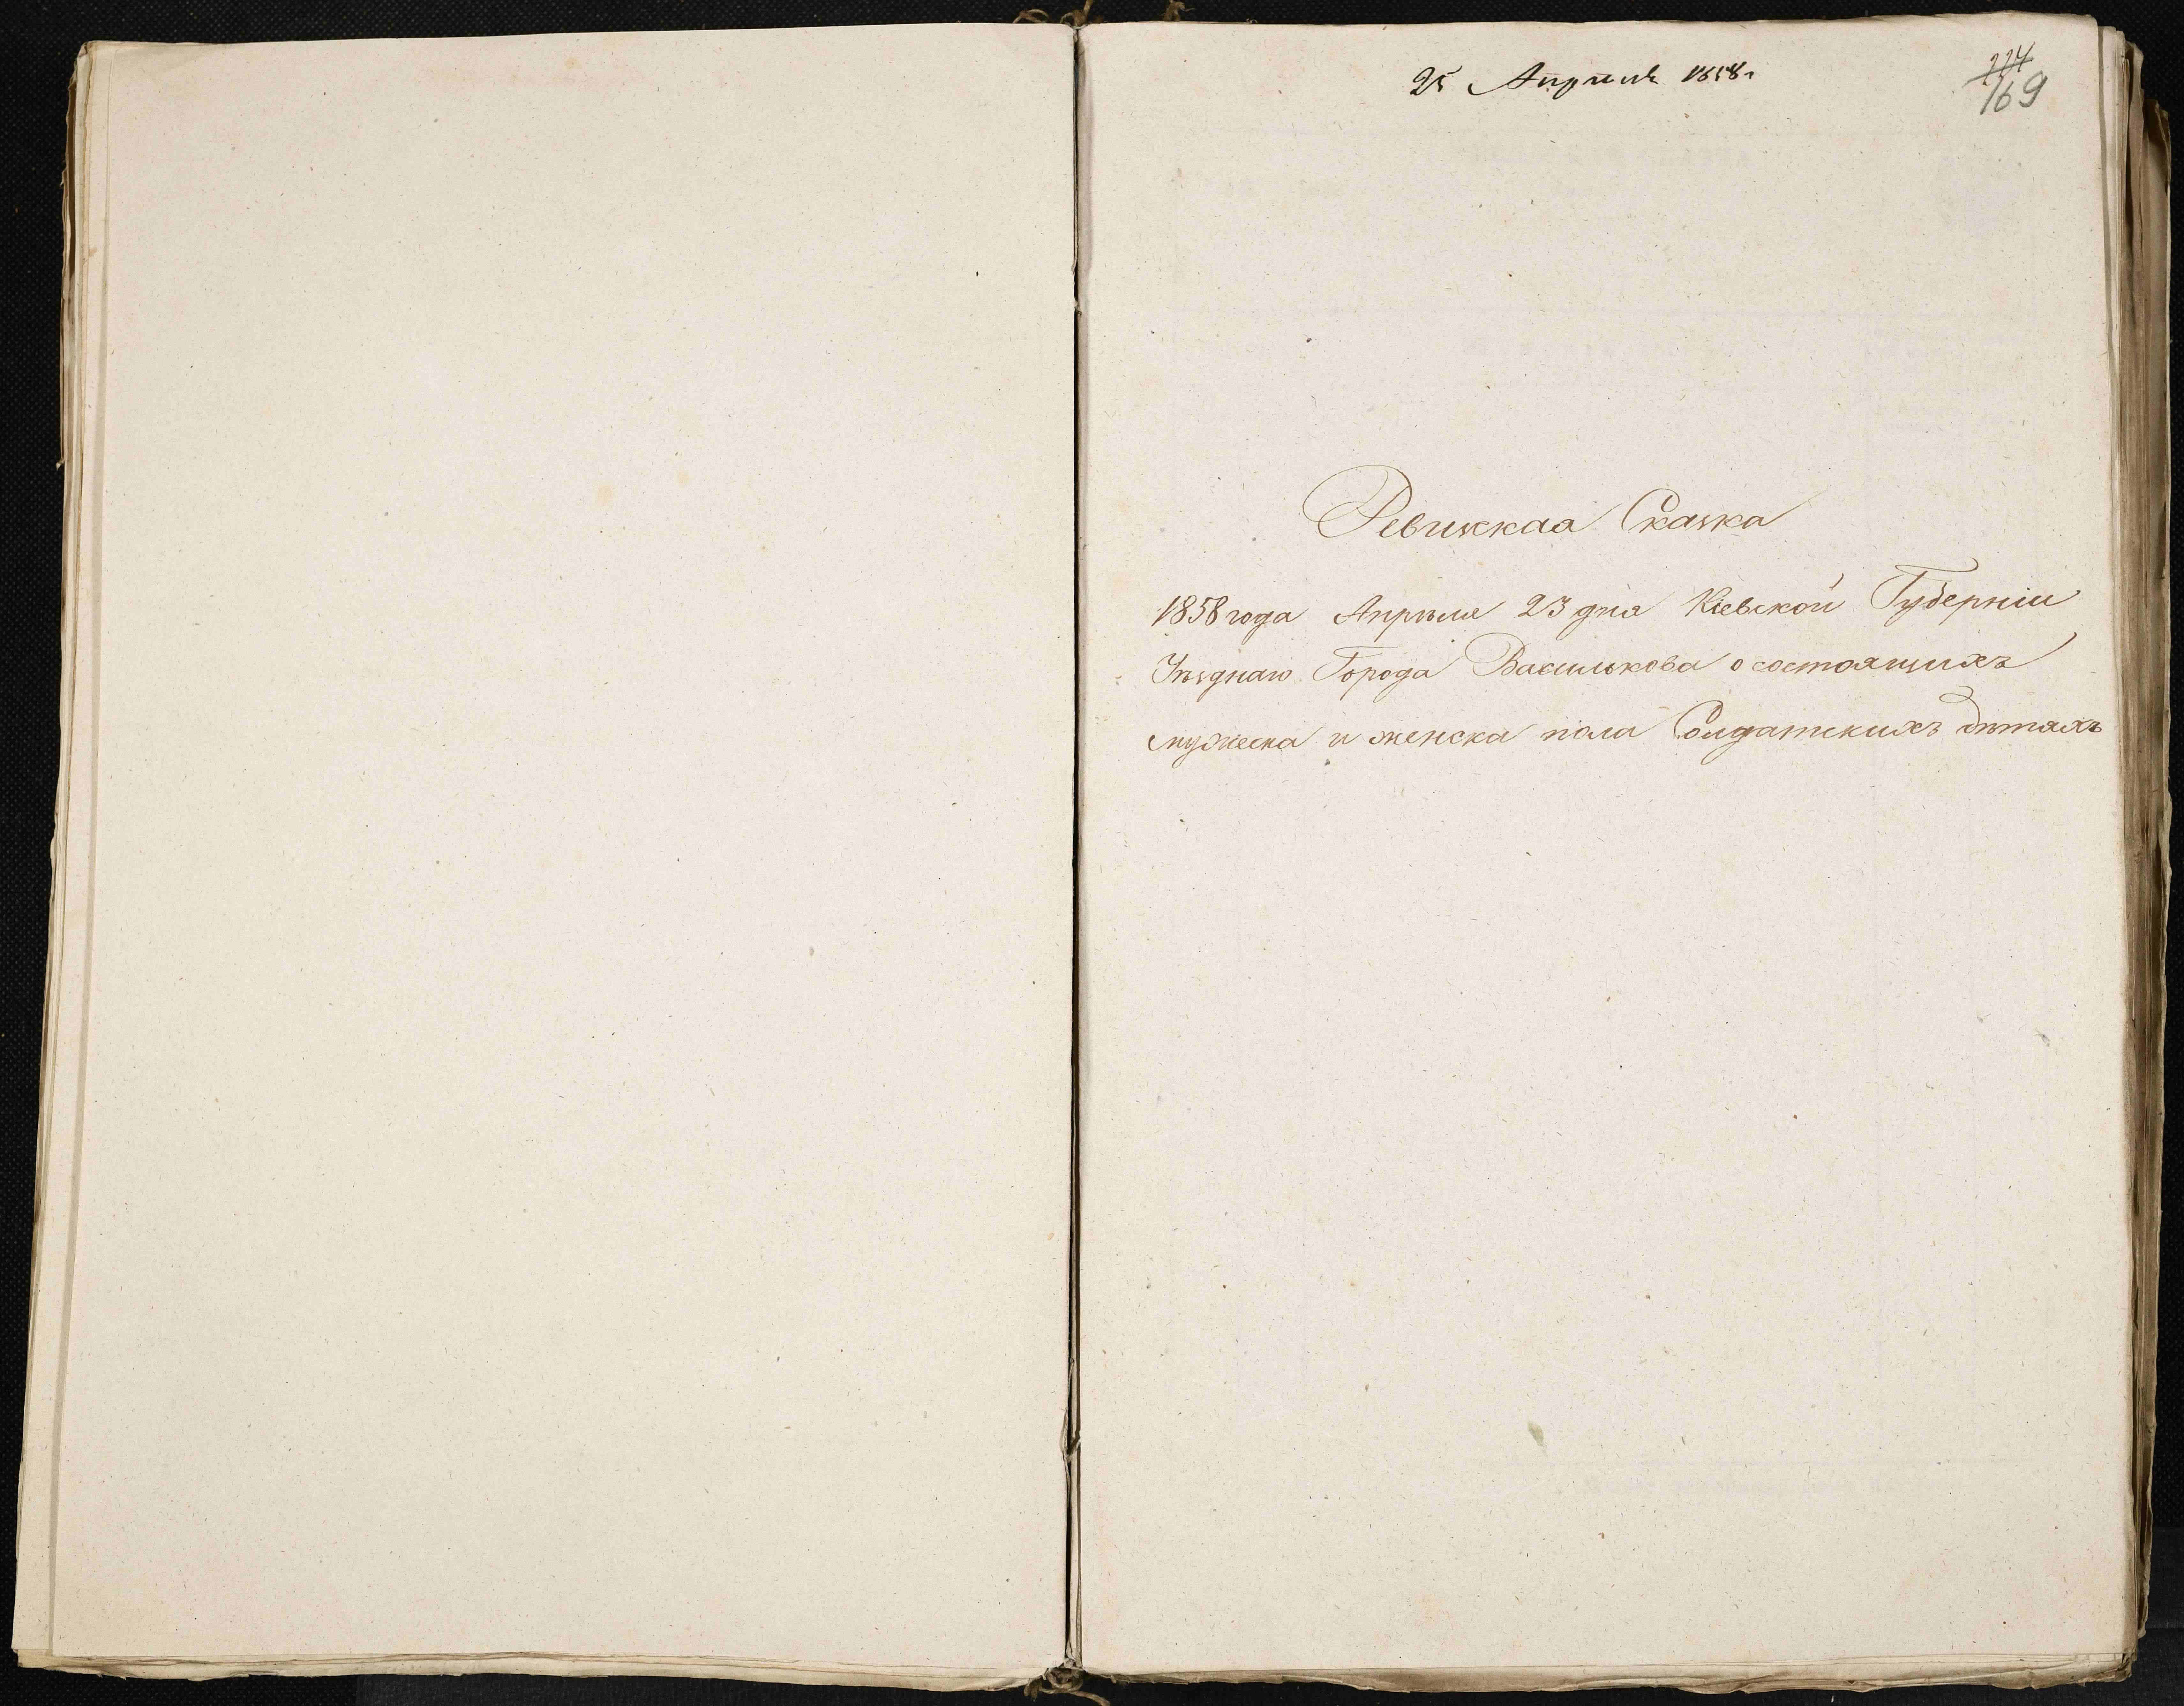 25 Апрѣля 1858 г
224
169
Ревижкая Сказка
1858 года Апрѣля 23 дня Кіевской Губерніи
Уѣзднаго Города Василькова о состоящихъ
мужеска и женска пола Солдатскихъ дѣтяхъ